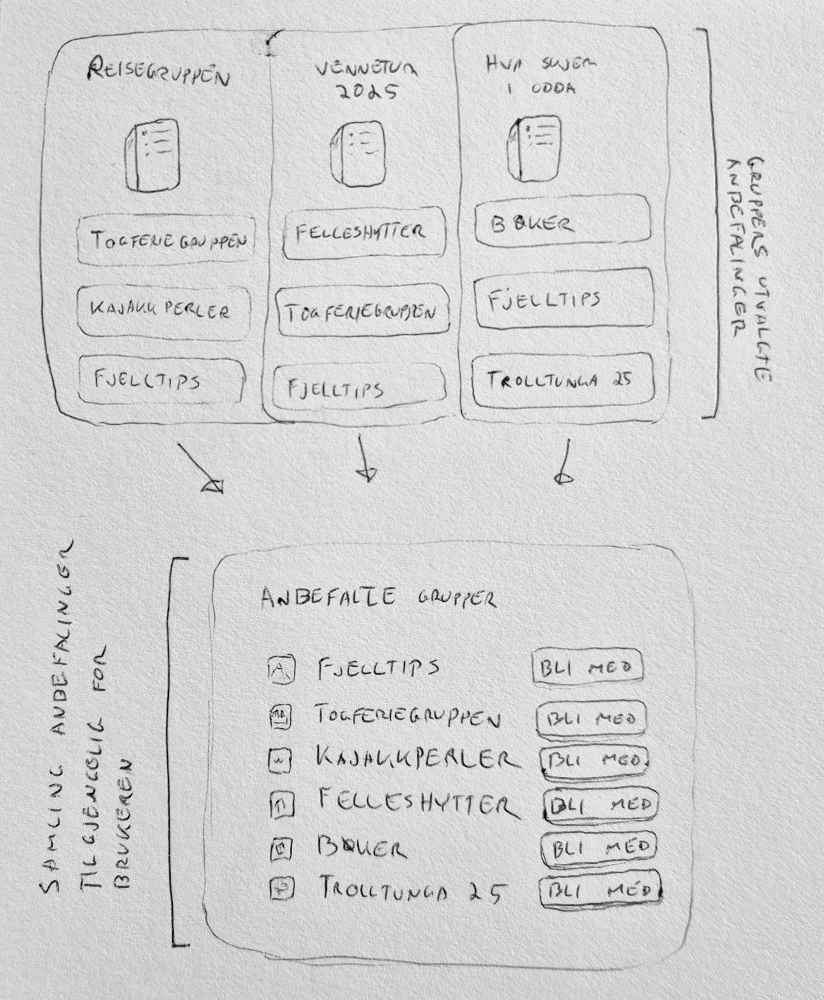 REISEGRUPPEN
TOGFERIEGRUPPEN
KAJAKKPERLER
FJELLTIPS
VENNETUR
2025
FELLESHYTTER
TOGFERIEGRUPPEN
FJELLTIPS
HVA SKJER
I ODDA
BØKER
FJELLTIPS
TROLLTUNGA 25
GRUPPERS UTVALGTE
ANBEFALINGER
SAMLING ANBEFALINGER
TILGJENGELIG FOR
BRUKEREN
ANBEFALTE GRUPPER
FJELLTIPS BLI MED
TOGFERIEGRUPPEN BLI MED
KAJAKKPERLER BLI MED
FELLESHYTTER BLI MED
BØKER BLI MED
TROLLTUNGA 25 BLI MED